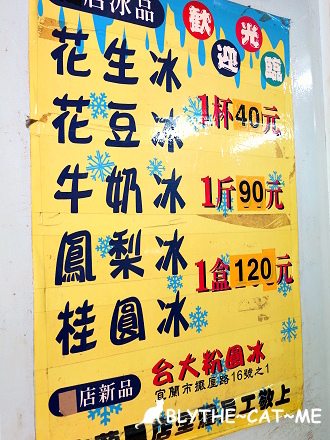 店冰品
歡迎光臨
花生冰
花豆冰
1杯40元
牛奶冰
1斤90元
鳳梨冰
1盒120元
桂圓冰
店新品
台大粉圓冰
宜蘭市擺厘路16號之1
工敬上
BLYTHE~CAT~ME